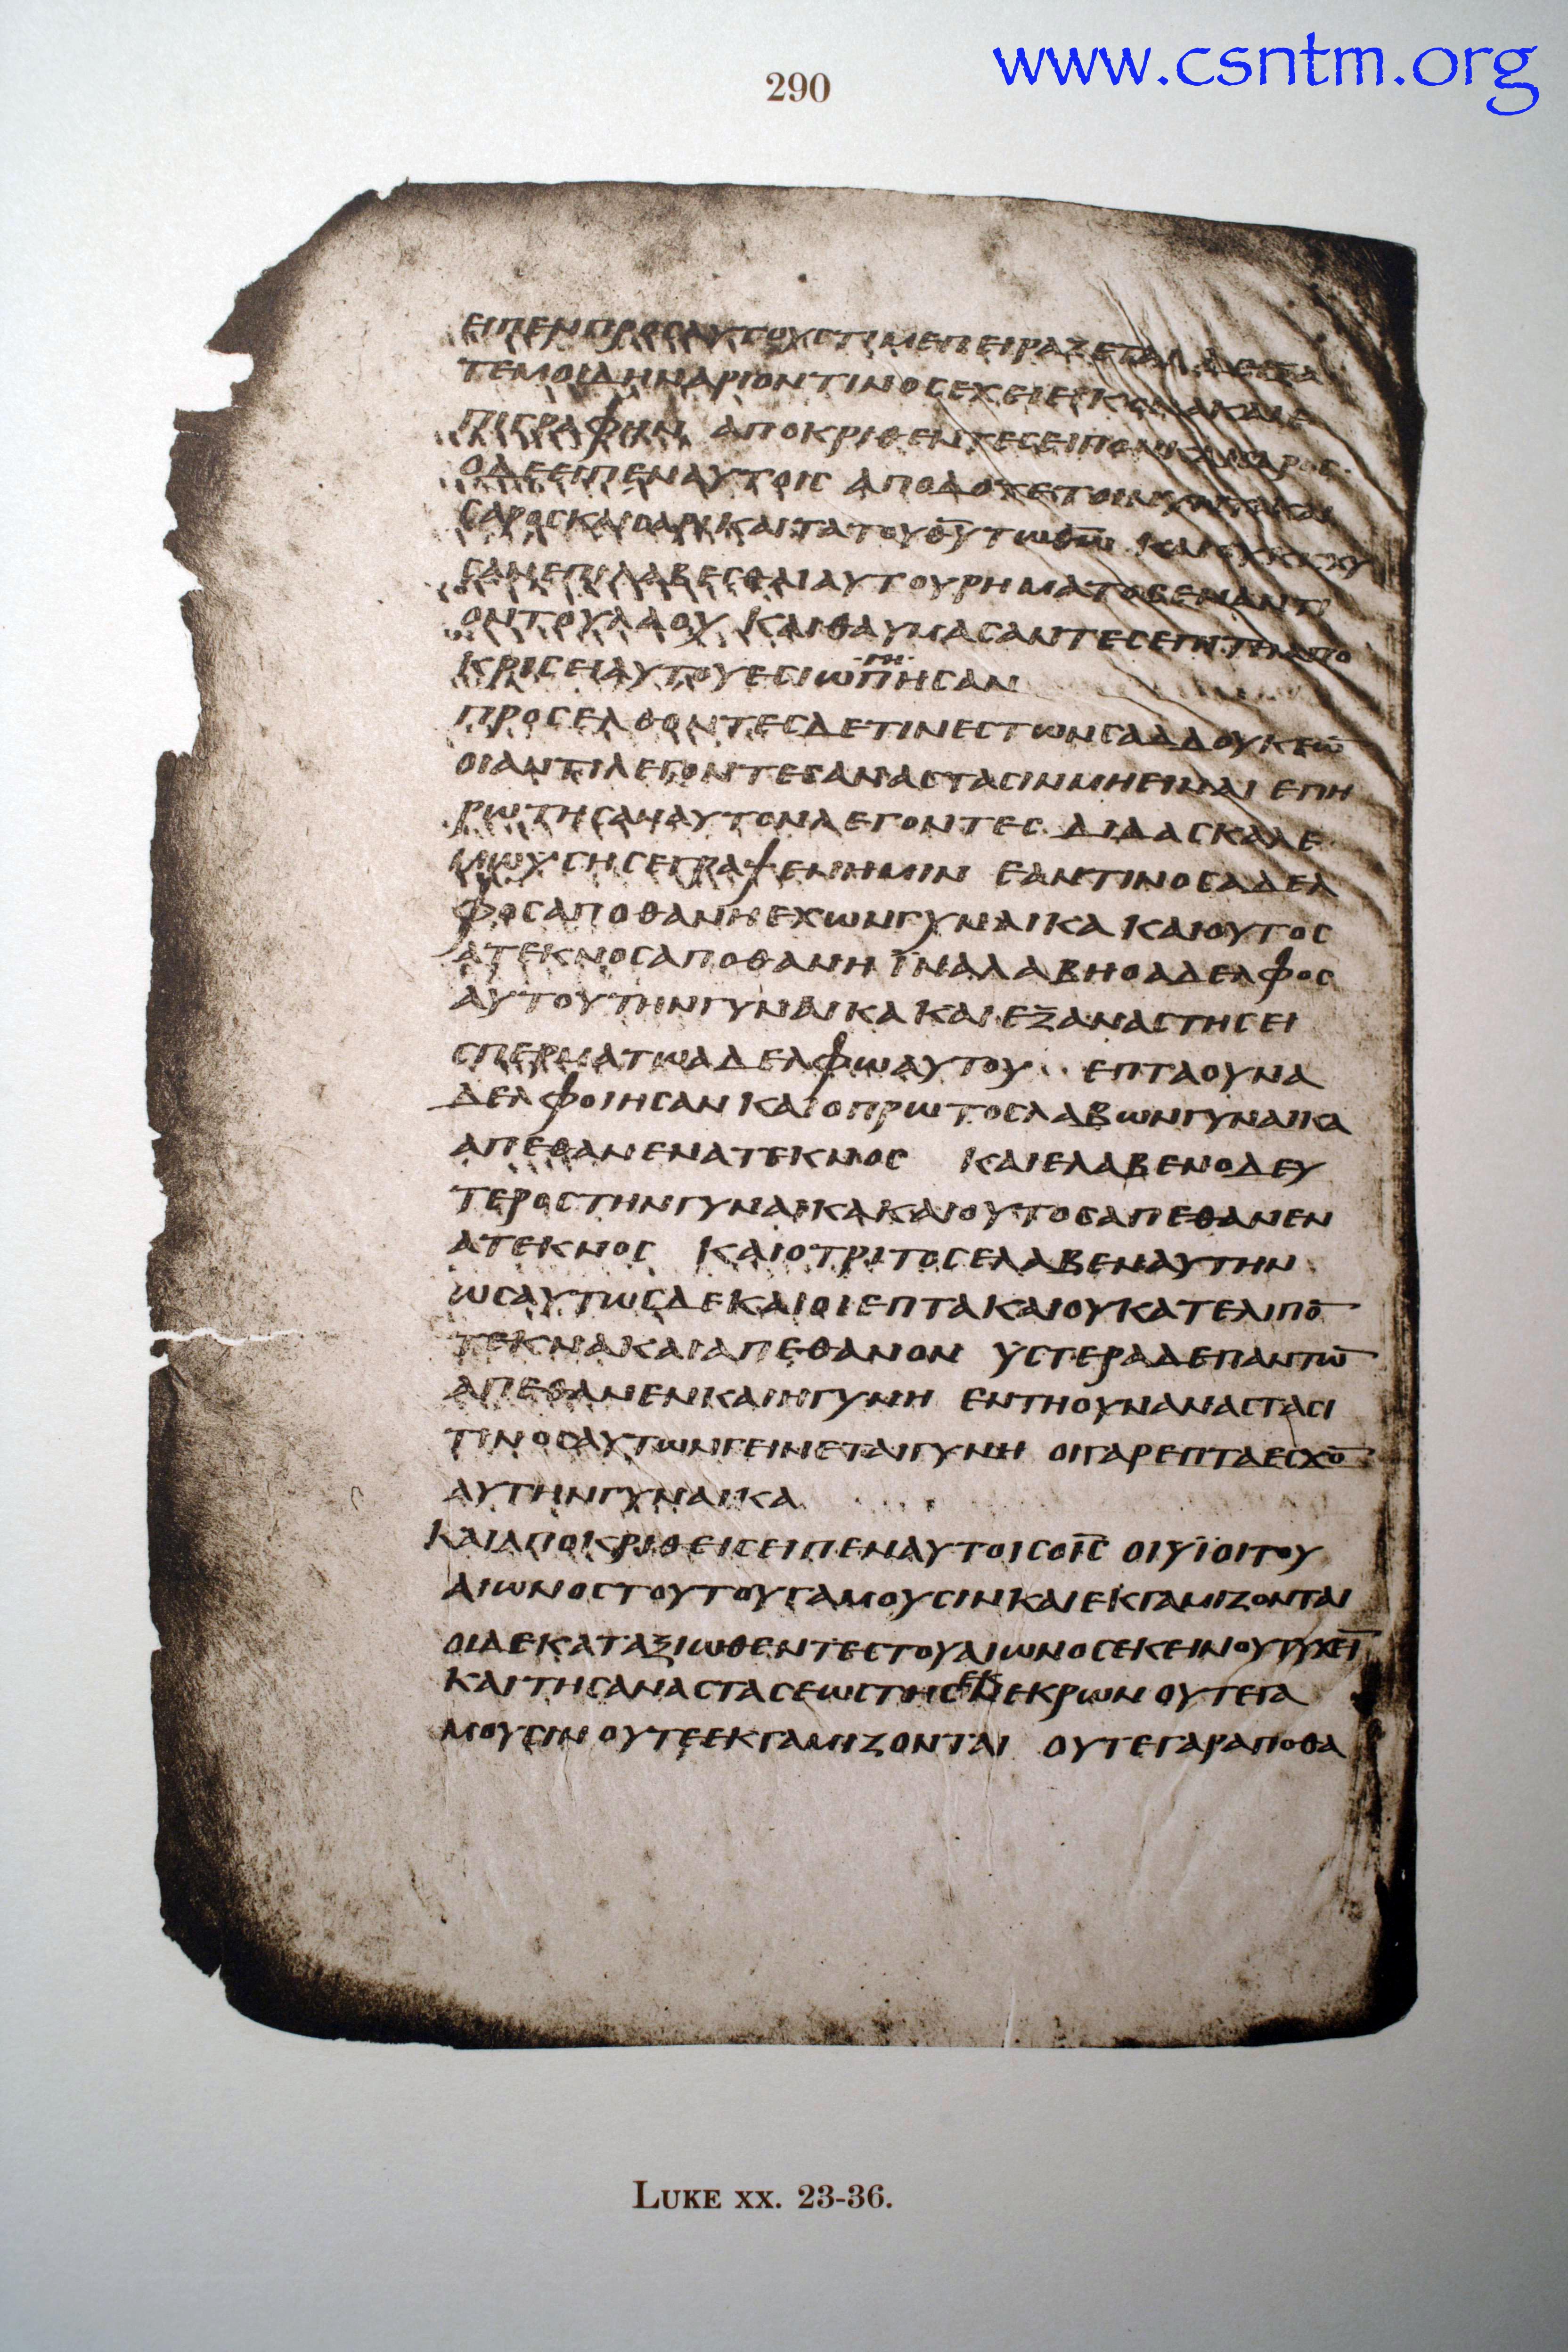 www.csntm.org
290
ΕΙΠΕΝΠΡΟCΑΥΤΟΥCΤΙΜΕΠΕΙΡΑΖΕΤΑΙ
ΤΕΜΟΙΔΗΝΑΡΙΟΝΤΙΝΟCΕΧΕΙΕΙΚΟΝΑΚΑΙΕ
ΠΙΓΡΑΦΗΝ ΑΠΟΚΡΙΘΕΝΤΕCΕΙΠΟΝΚΑΙCΑΡΟC·
ΟΔΕΕΙΠΕΝΑΥΤΟΙC ΑΠΟΔΟΤΕΤΟΙΝΥΝΤΑΚΑΙ
CΑΡΟCΚΑΙCΑΡΙΚΑΙΤΑΤΟΥΘ̅Υ̅ΤΩΘ̅Ω̅ ΚΑΙΟΥΚΙCΧΥ
CΑΝΕΠΙΛΑΒΕCΘΑΙΑΥΤΟΥΡΗΜΑΤΟCΕΝΑΝΤΙ
ΟΝΤΟΥΛΑΟΥ ΚΑΙΘΑΥΜΑCΑΝΤΕC
ΚΡΙCΕΙΑΥΤΟΥΕCΙΩΠΗCΑΝ
ΠΡΟCΕΛΘΟΝΤΕCΔΕΤΙΝΕCΤΩΝCΑΔΔΟΥΚΕΩ̅
ΟΙΑΝΤΙΛΕΓΟΝΤΕCΑΝΑCΤΑCΙΝΜΗΕΙΝΑΙ ΕΠΗ
ΡΩΤΗCΑΝΑΥΤΟΝΛΕΓΟΝΤΕC ΔΙΔΑCΚΑΛΕ
ΜΩΥCΗCΕΓΡΑΨΕΝΗΜΙΝ ΕΑΝΤΙΝΟCΑΔΕΛ
ΦΟCΑΠΟΘΑΝΗΕΧΩΝΓΥΝΑΙΚΑ ΚΑΙΟΥΤΟC
ΑΤΕΚΝΟCΑΠΟΘΑΝΗ ΪΝΑΛΑΒΗΟΑΔΕΛΦΟC
ΑΥΤΟΥΤΗΝΓΥΝΑΙΚΑ ΚΑΙΕΞΑΝΑCΤΗCΕΙ
CΠΕΡΜΑΤΩΑΔΕΛΦΩΑΥΤΟΥ· ΕΠΤΑΟΥΝΑ
ΔΕΛΦΟΙΗCΑΝ ΚΑΙΟΠΡΩΤΟCΛΑΒΩΝΓΥΝΑΙΚΑ
ΑΠΕΘΑΝΕΝΑΤΕΚΝΟC ΚΑΙΕΛΑΒΕΝΟΔΕΥ
ΤΕΡΟCΤΗΝΓΥΝΑΙΚΑΚΑΙΟΥΤΟCΑΠΕΘΑΝΕΝ
ΑΤΕΚΝΟC ΚΑΙΟΤΡΙΤΟCΕΛΑΒΕΝΑΥΤΗΝ
ΩCΑΥΤΩCΔΕΚΑΙΟΙΕΠΤΑΚΑΙΟΥΚΑΤΕΛΙΠΟ̅
ΤΕΚΝΑΚΑΙΑΠΕΘΑΝΟΝ ΥCΤΕΡΑΔΕΠΑΝΤΩ̅
ΑΠΕΘΑΝΕΝΚΑΙΗΓΥΝΗ ΕΝΤΗΟΥΝΑΝΑCΤΑCΙ
ΤΙΝΟCΑΥΤΩΝΓΕΙΝΕΤΑΙΓΥΝΗ ΟΙΓΑΡΕΠΤΑΕCΧΟ̅
ΑΥΤΗΝΓΥΝΑΙΚΑ
ΚΑΙΑΠΟΚΡΙΘΕΙCΕΙΠΕΝΑΥΤΟΙCΟΙ̅C̅ ΟΙΥΪΟΙΤΟΥ
ΑΙΩΝΟCΤΟΥΤΟΥΓΑΜΟΥCΙΝΚΑΙΕΚΓΑΜΙΖΟΝΤΑΙ
ΟΙΔΕΚΑΤΑΞΙΩΘΕΝΤΕCΤΟΥΑΙΩΝΟCΕΚΕΙΝΟΥΤΥΧΕΙ̅
ΚΑΙΤΗCΑΝΑCΤΑCΕΩCΤΗCΕΚΝΕΚΡΩΝ ΟΥΤΕΓΑ
ΜΟΥCΙΝ ΟΥΤΕΕΚΓΑΜΙΖΟΝΤΑΙ ΟΥΤΕΓΑΡΑΠΟΘΑ
LUKE XX. 23-36.